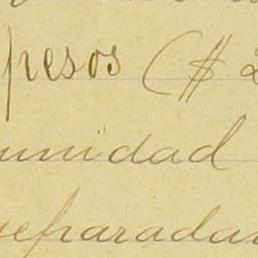 pesos ($ 2
unidad
separadam